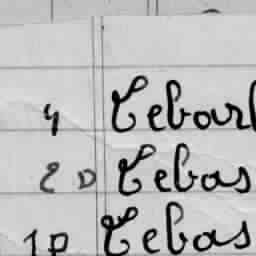 4 Cebarl
20 Cebas
10 Cebas